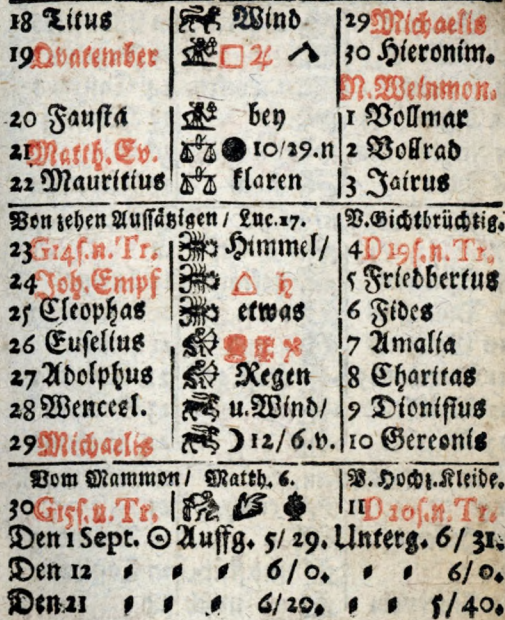 18 Titus Wind 29 Michaelis
19 Quatember □ ♃ 30 Hieronim.
N. Weinmon.
20 Fausta bey 1 Vollmar
21 Matth. Ev. ● 10/29.n 2 Vollrad
22 Mauritius klaren 3 Jairus
Von zehen Aussätzigen / Luc.17. V. Gichtbrüchtig.
23 G14 s.n.Tr. Himmel/ 4 D19 s.n.Tr.
24 Joh. Empf △ ♄ 5 Friedbertus
25 Cleophas etwas 6 Fides
26 Euselius 7 Amalia
27 Adolphus Regen 8 Charitas
28 Wencesl. u. Wind/ 9 Dionisius
29 Michaelis ☽ 12/6.v. 10 Gereonis
Vom Mammon/ Matth. 6. V. Hochz. Kleide.
30 G15 s.n.Tr. 11 D20 s.n.Tr.
Den 1 Sept. ☉ Auffg. 5/29. Unterg. 6/31.
Den 12 6/0. 6/0.
Den 21 6/20. 5/40.